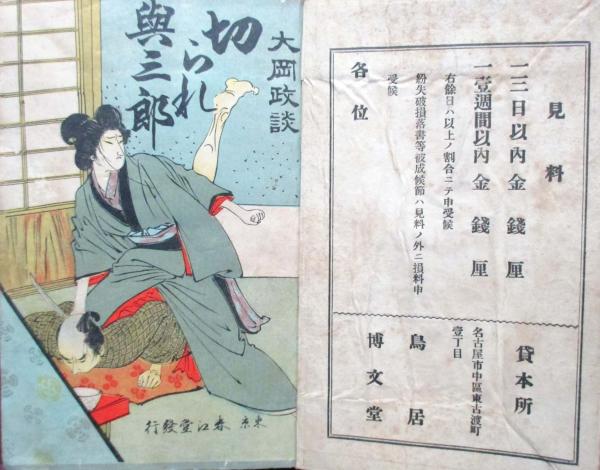 大岡政談
切られ
與三郎
東京 春江堂發行
見料
一三日以內金 錢 厘
一壹週間以內金 錢 厘
右餘日ハ以上ノ割合ニテ申受候
紛失破損落書等被成候節ハ見料ノ外ニ損料申
受候
各位
貸本所
名古屋市中區東古渡町
壹丁目
鳥居
博文堂